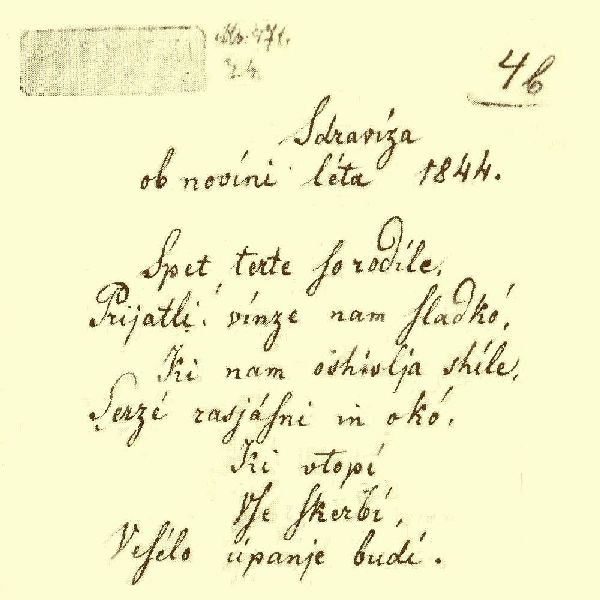 Ms. 471.
4b
Sdravíza
ob novíni léta 1844.
Spet terte ſo rodíle,
Prijatli! vínze nam ſladkó,
Ki nam oshivlja shile,
Serzé rasjáſni in okó,
Ki vtopí
Vſe ſkerbí,
Veſélo úpanje budí.